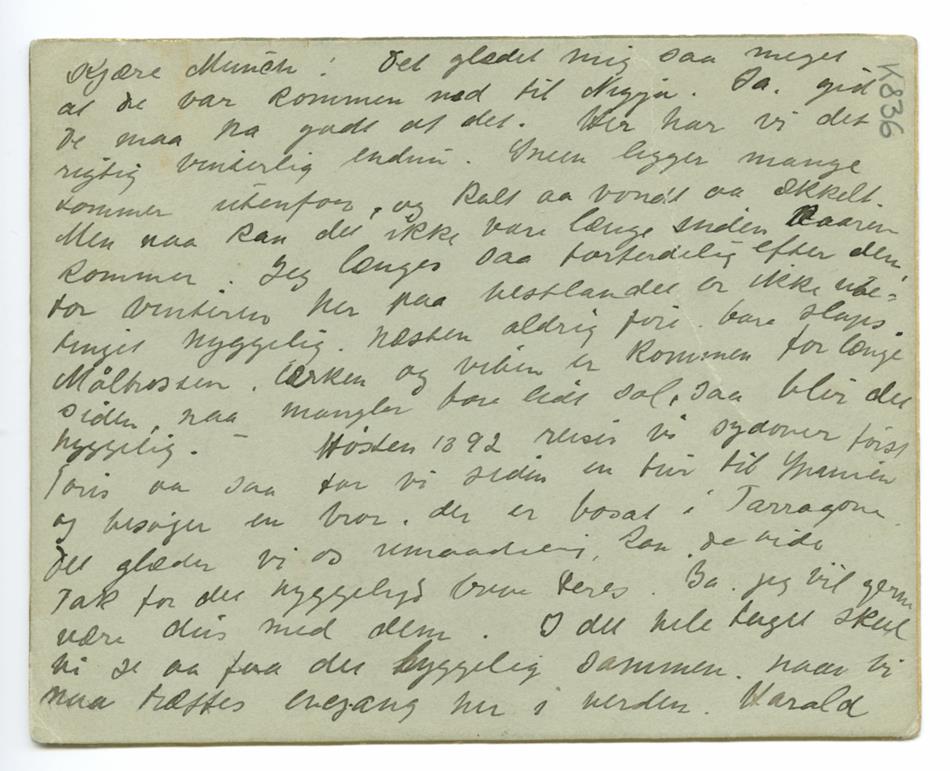 Kjære Munch! Det glædet mig saa meget
at De var kommen ned til Nizza. Ja. gid
De maa ha godt af det. Her har vi det
rigtig vinterlig endnu. Sneen ligger mange
tommer utenfor, og kalt aa vondt aa ækkelt.
Men naa kan det ikke vare længe inden Vaaren
kommer. Jeg længes saa forferdelig efter den,
for vinteren her paa vestlandet er ikke ube-
tinget hyggelig. næsten aldrig føre. bare slaps.
Måltrosten, Lærken og viben er kommen for længe
siden, naa mangler bare lidt sol, saa blir det
hyggelig. – Høsten 1892 reiser vi sydover først
Paris aa saa tar vi siden en tur til Spanien
og besøger en bror, der er bosat i Tarragona.
Det glæder vi os umaadelig, kan De vide
Tak for det hyggelige brev Deres. Ja. jeg vil gerne
være dus med dem. I det hele taget skal
vi se aa faa det hyggelig sammen. naar vi
maa træffes engang her i verden. Harald
K836